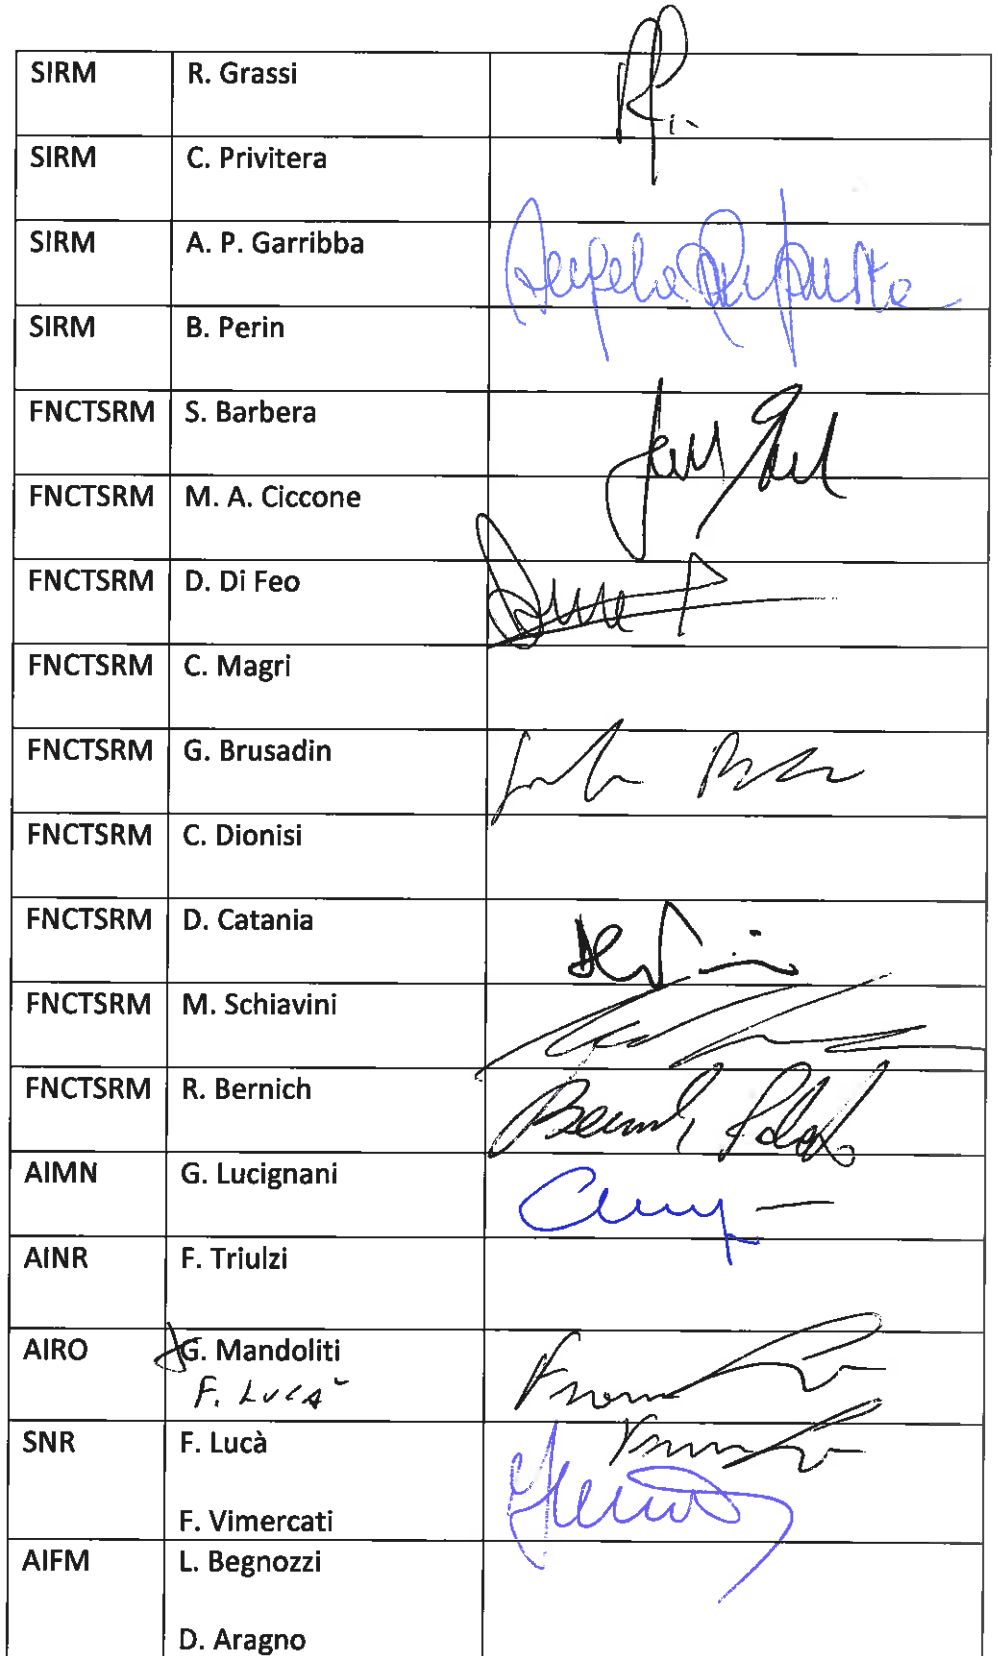 SIRM R. Grassi
SIRM C. Privitera
SIRM A. P. Garribba
SIRM B. Perin
FNCTSRM S. Barbera
FNCTSRM M. A. Ciccone
FNCTSRM D. Di Feo
FNCTSRM C. Magri
FNCTSRM G. Brusadin
FNCTSRM C. Dionisi
FNCTSRM D. Catania
FNCTSRM M. Schiavini
FNCTSRM R. Bernich
AIMN G. Lucignani
AINR F. Triulzi
AIRO G. Mandoliti
F. LUCÀ
SNR F. Lucà
F. Vimercati
AIFM L. Begnozzi
D. Aragno